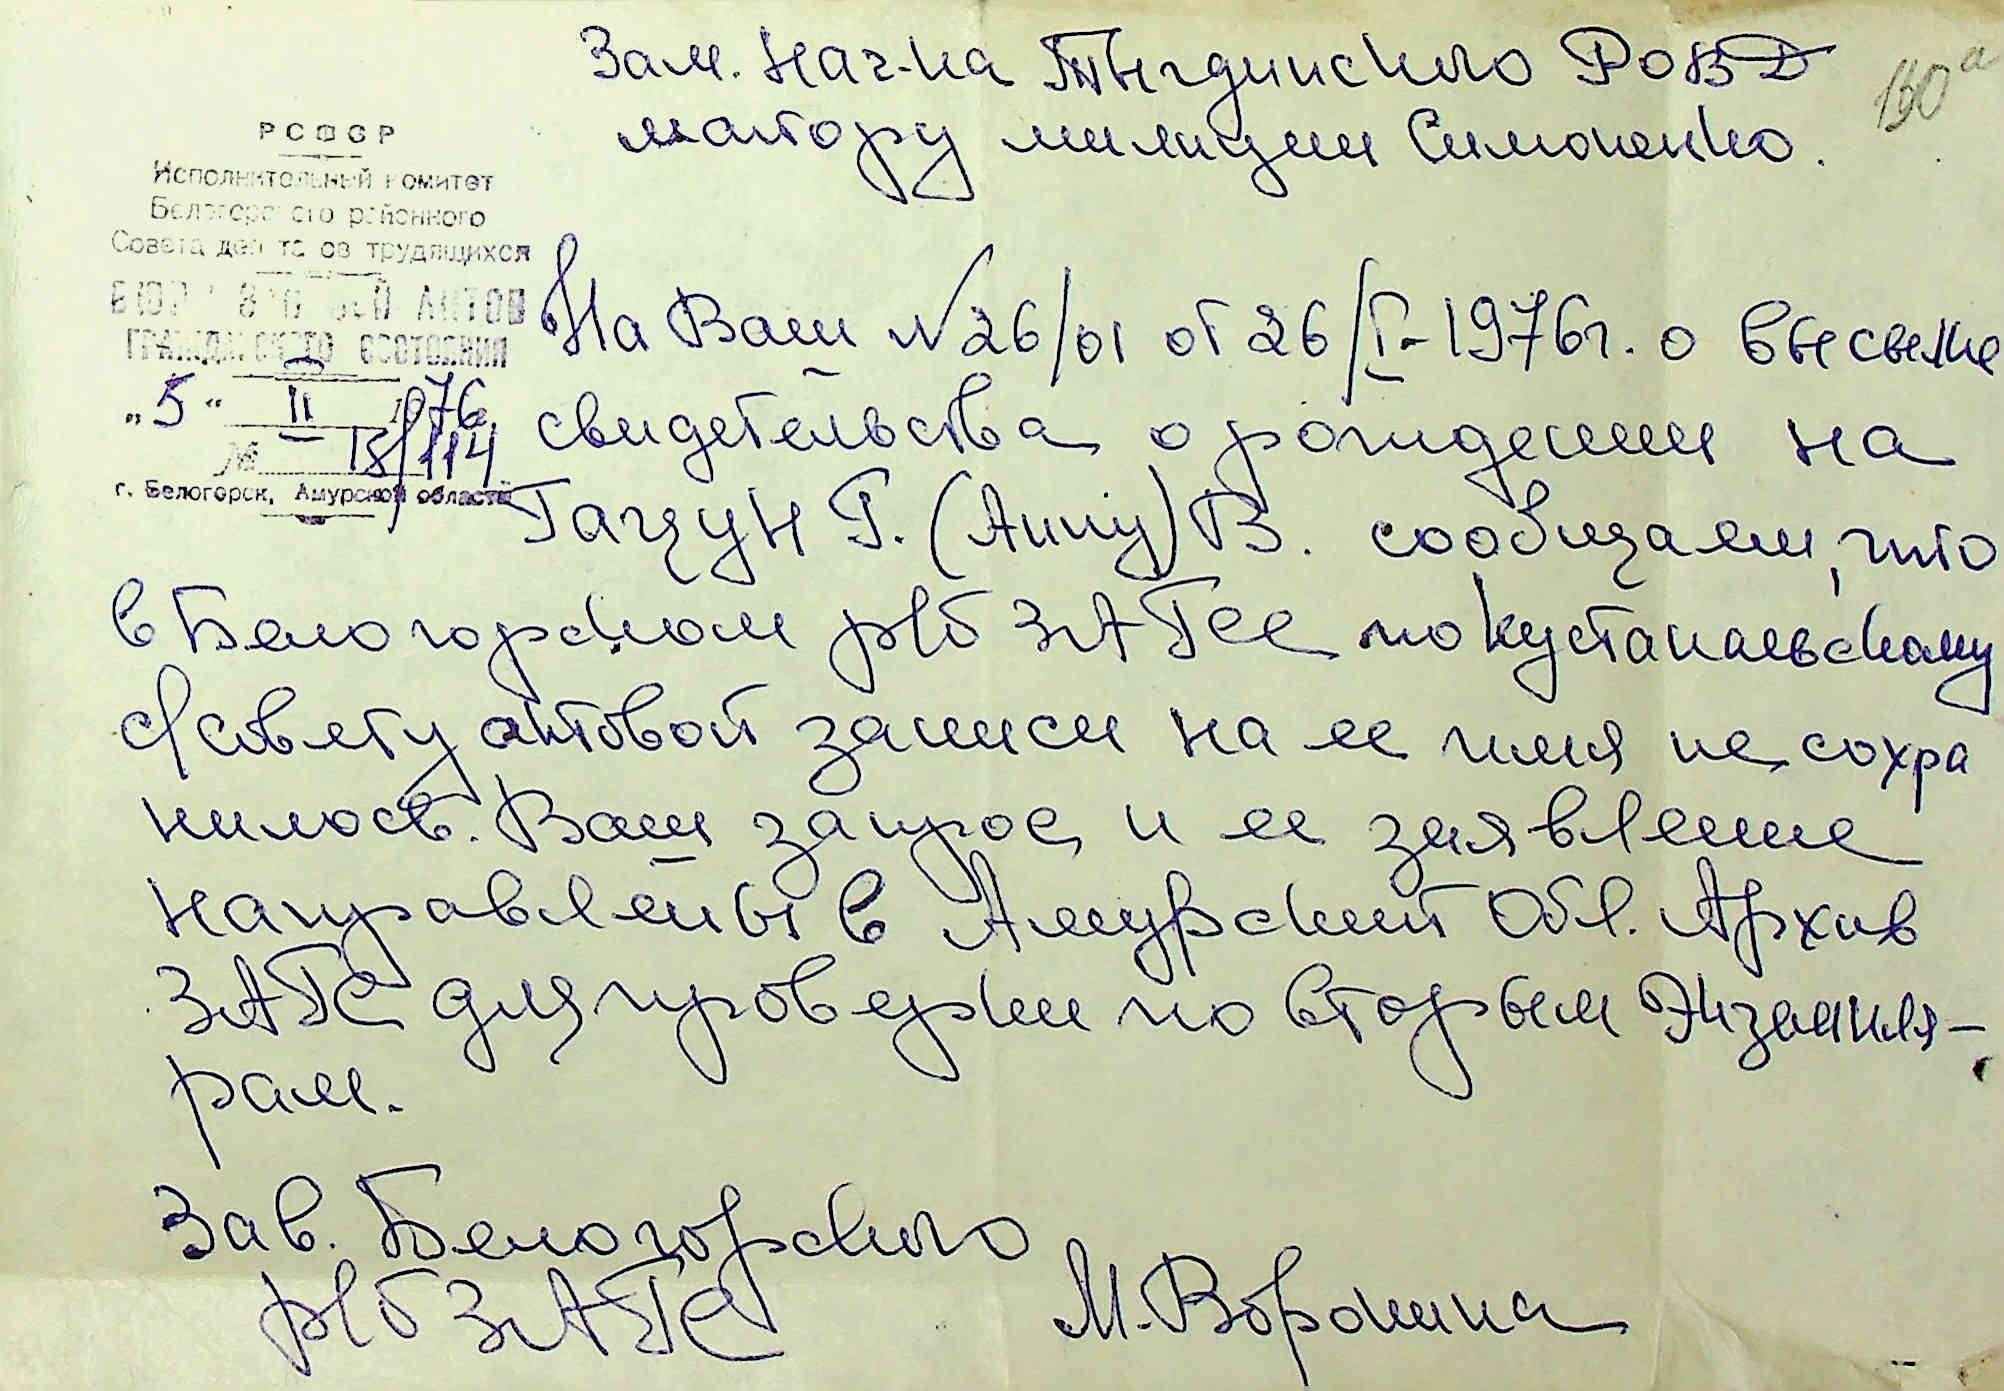 Зам. нач-ка Тыгдинского РОВД
майору милиции Симоненко.
190а
РСФСР
Исполнительный комитет
Белогорского районного
Совета депутатов трудящихся
БЮРО ЗАПИСЕЙ АКТОВ
ГРАЖДАНСКОГО СОСТОЯНИЯ
„5“ II 1976
№ 18/114
г. Белогорск, Амурской области
На Ваш №26/01 от 26/I-1976г. о высылке
свидетельства о рождении на
Гацун Г. (Анну) В. сообщаем, что
в Белогорском р/б ЗАГСе по Кустанаевскому
с/совету актовой записи на ее имя не сохра
нилось. Ваш запрос и ее заявление
направлены в Амурский Обл. Архив
ЗАГС для проверки по вторым Экземпля-
рам.
Зав. Белогорского
р/б ЗАГС М. Воронина